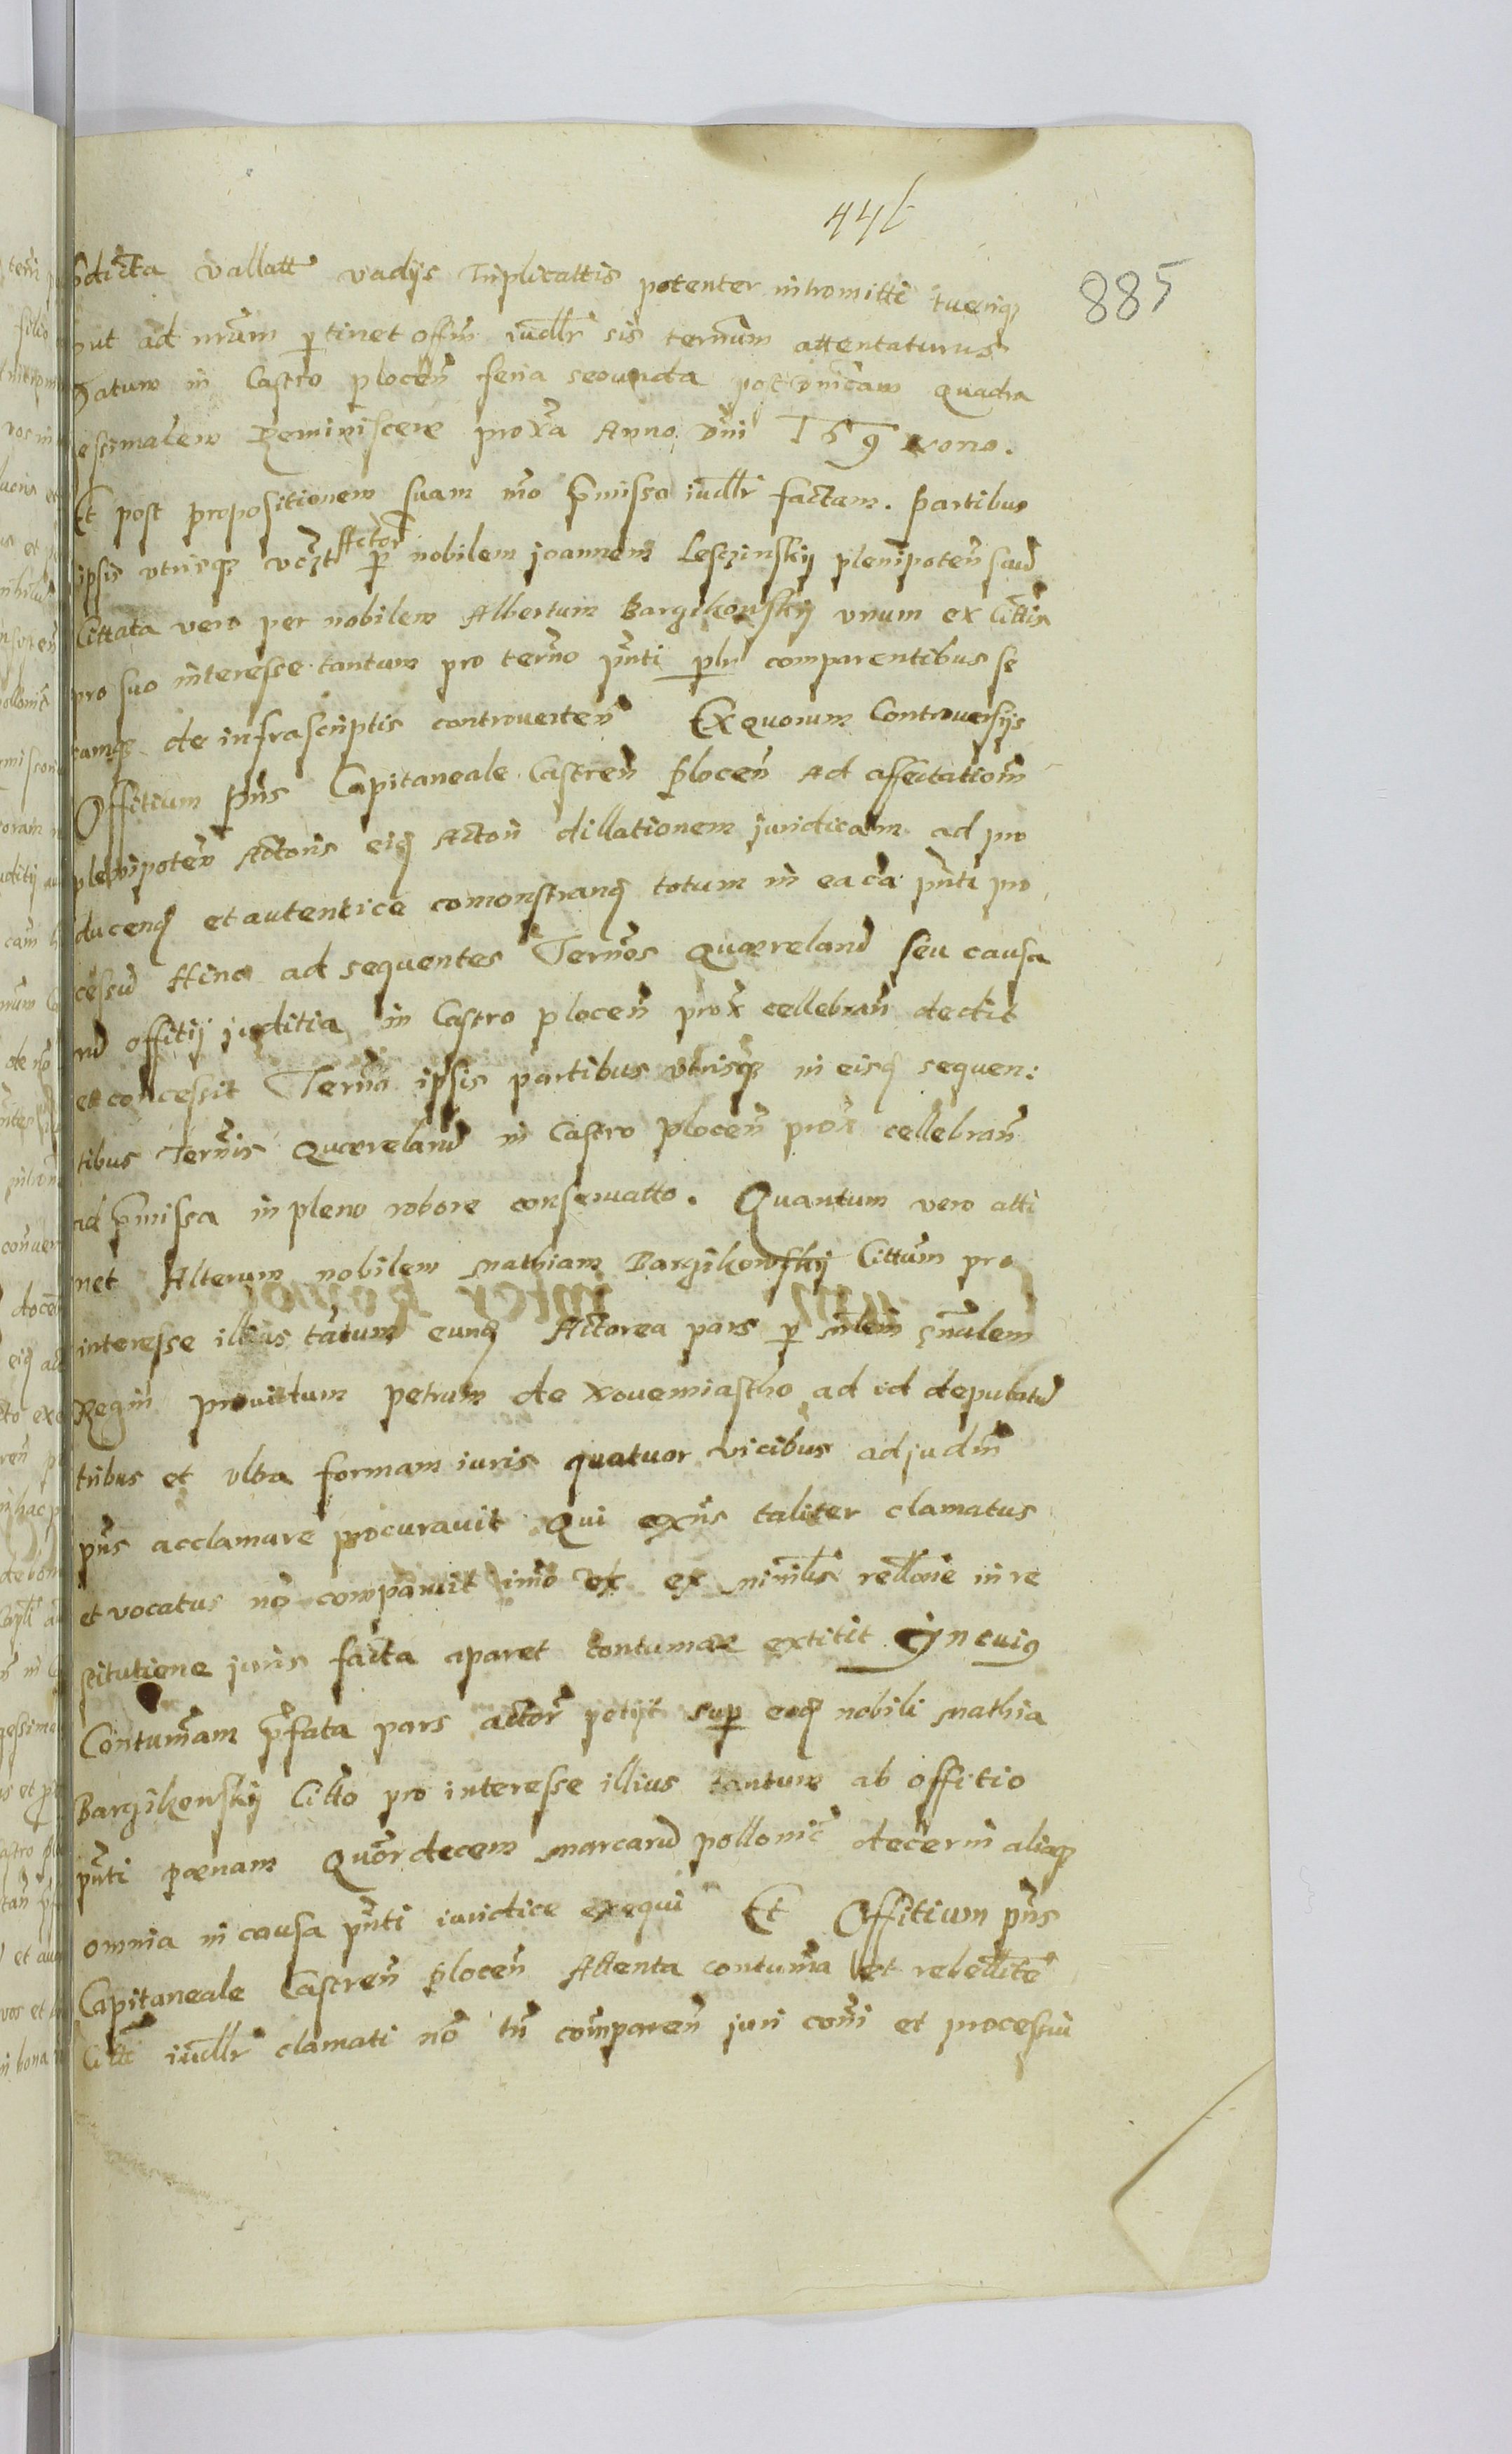 441
885
p̄dicta vallatt vadijs Triplicattis potenter intromitti tueriq3
put ad nr̄um ptinet offm̄ iudllr̄ sis termūm attentaturus
Datum in Castro plocen̄ feria secunda post Dnīcam Quadra
esimalem Reminiscere prox̄a Anno Dnī 159 nono.
Et post propositionem suam mō p̄misso iudllr̄ factam. Partibus
ipsis utrisq3 vc̄zt Actor̄ p nobilem joannem Leszzinskij plenipoten̄ suū
Cittata vero per nobilem Albertum Bargikowskij unum ex Cittis
pro suo interesse tantum pro termō pn̄ti plr̄ comparentibus se
camq3 de infrascriptis controverten̄ Ex quorum Controversijs
Offitium pn̄s Capitaneale Castren̄ Plocen̄ Ad affectatiom̄
plenipoten̄ Actoris eiq3 Actori dillationem juridicam ad pro
ducenq3 et autentice comonstranq3 totum in ea cā pn̄ti pro
cessū Hinc ad sequentes Termōs Quærelarū seu causa
rū offitij juditia in Castro plocen̄ prox̄ cellebran̄ dedit
et concessit Termō ipsis partibus utrisq3 in eisq3 sequen:
tibus Termīs Quærelarū in Castro Plocen̄ prox̄ cellebran̄
ad p̄missa in pleno robore conservatto. Quantum vero atti
net Alterum nobilem Mathiam Bargikowskij Cittūm pro
interesse illius tātum eunq3 Actorea pars p mlem gn̄alem
Regni providum petrum de Novemiastho ad id deputatū
tribus et ultra formam iuris quatuor vicibus ad judm̄
pn̄s acclamare procuravit Qui exn̄s taliter clamatus
et vocatus nō comparuit imō et ex mīnilis rellōne in re
stitutione juris facta aparet contumax extitit In cuiq
Contumām p̄fata pars actor̄ petijt sup eoq3 nobili Mathia
Bargikowskij Citto pro interesse illius tantum ab offitio
pn̄ti pænam Quōrdecem marcarū pollonic̄ decerni aliaq3
omnia in causa pn̄ti iuridice exequi Et Offitium pn̄s
Capitaneale Castren̄ Plocen̄ Attenta contumā et rebellite
Citti iudllr̄ clamati nō tn̄ comparen̄ juri comi et processui